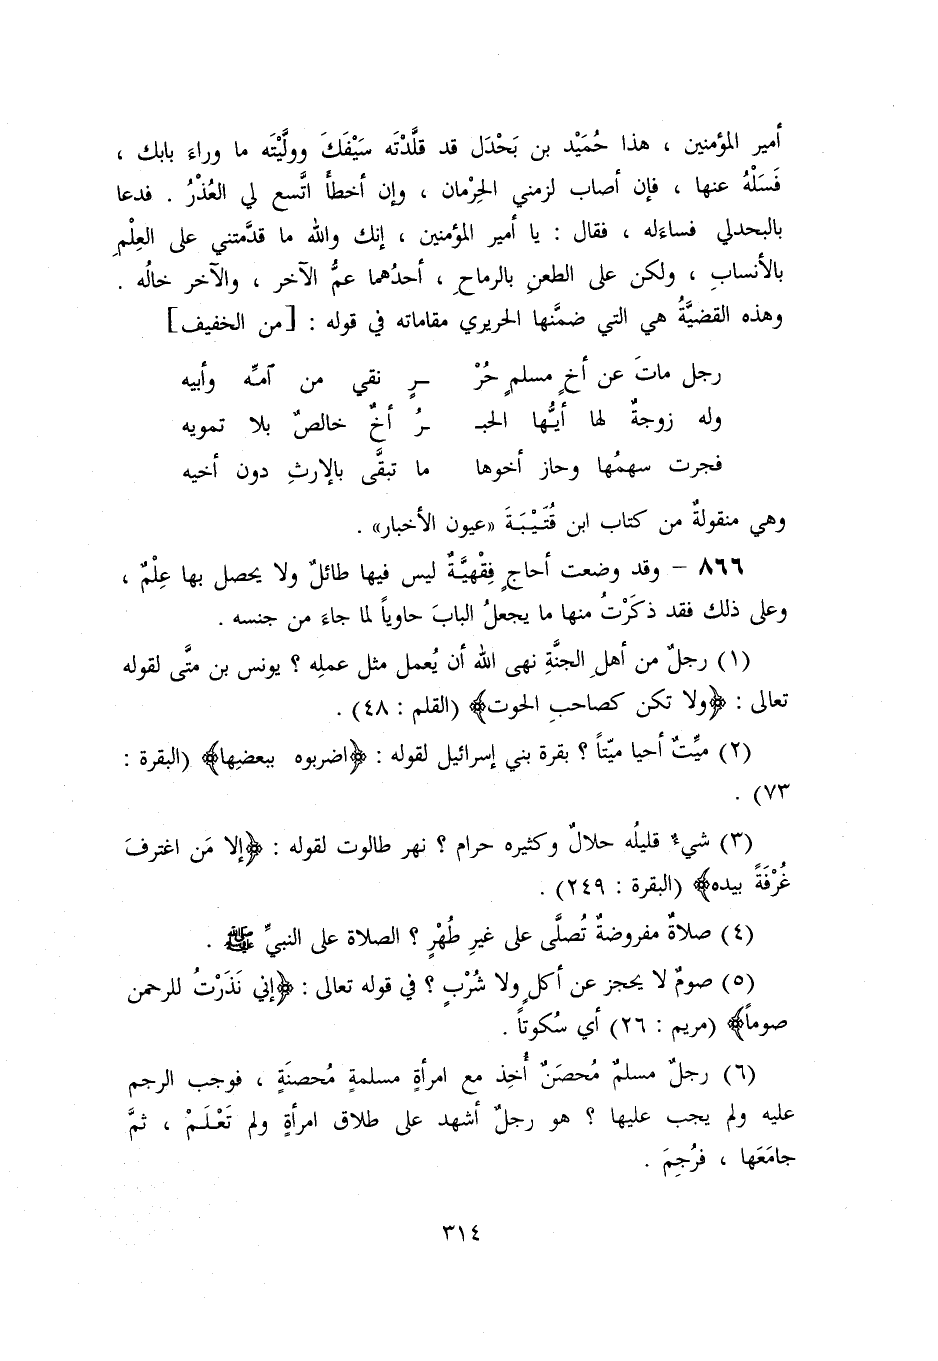 أمير المؤمنين ، هذا حُمَيْد بن بَحْدَل قد قلَّدْتَه سَيْفَكَ وولَّيْتَه ما وراءَ بابك ،
فَسَلْهُ عنها ، فإن أصاب لزمني الحِرْمان ، وإن أخطأ اتَّسع لي العُذْرُ . فدعا
بالبحدلي فساءله ، فقال : يا أمير المؤمنين ، إنك والله ما قدَّمتني على العِلْمِ
بالأنسابِ ، ولكن على الطعنِ بالرماحِ ، أحدُهما عمُّ الآخر ، والآخر خالُه .
وهذه القضيَّةُ هي التي ضمَّنها الحريري مقاماته في قوله : [من الخفيف]
رجل ماتَ عن أخٍ مسلمٍ حُرْ ــرٍ نقي من اُمِّه وأبيه
وله زوجةٌ لها أيُّها الحبـ ـرُ أخٌ خالصٌ بلا تمويه
فجرت سهمُها وحاز أخوها ما تبقَّى بالإرثِ دون أخيه
وهي منقولةٌ من كتاب ابن قُتَيْبَةَ «عيون الأخبار» .
٨٦٦ – وقد وضعت أحاجٍ فِقْهيَّةٌ ليس فيها طائلٌ ولا يحصل بها عِلْمٌ ،
وعلى ذلك فقد ذكَرْتُ منها ما يجعلُ البابَ حاوياً لما جاءَ من جنسه .
(١) رجلٌ من أهلِ الجنَّةِ نهى الله أن يُعمل مثل عملِه ؟ يونس بن متَّى لقوله
تعالى : ﴿ولا تكن كصاحبِ الحوت﴾ (القلم : ٤٨) .
(٢) ميِّتٌ أحيا ميّتاً ؟ بقرة بني إسرائيل لقوله : ﴿اضربوه ببعضِها﴾ (البقرة :
٧٣) .
(٣) شيءٌ قليلُه حلالٌ وكثيره حرام ؟ نهر طالوت لقوله : ﴿إلا مَن اغترفَ
غُرْفَةً بيده﴾ (البقرة : ٢٤٩) .
(٤) صلاةٌ مفروضةٌ تُصلَّى على غيرِ طُهْرٍ ؟ الصلاة على النبيِّ ﷺ .
(٥) صومٌ لا يحجز عن أكلٍ ولا شُرْبٍ ؟ في قوله تعالى : ﴿إني نَذَرْتُ للرحمن
صوماً﴾ (مريم : ٢٦) أي سُكوتاً .
(٦) رجلٌ مسلمٌ مُحصَنٌ أُخِذ مع امرأةٍ مسلمةٍ مُحصنَةٍ ، فوجب الرجم
عليه ولم يجب عليها ؟ هو رجلٌ أشهد على طلاق امرأةٍ ولم تَعْلَمْ ، ثمَّ
جامَعَها ، فرُجِمَ .
٣١٤